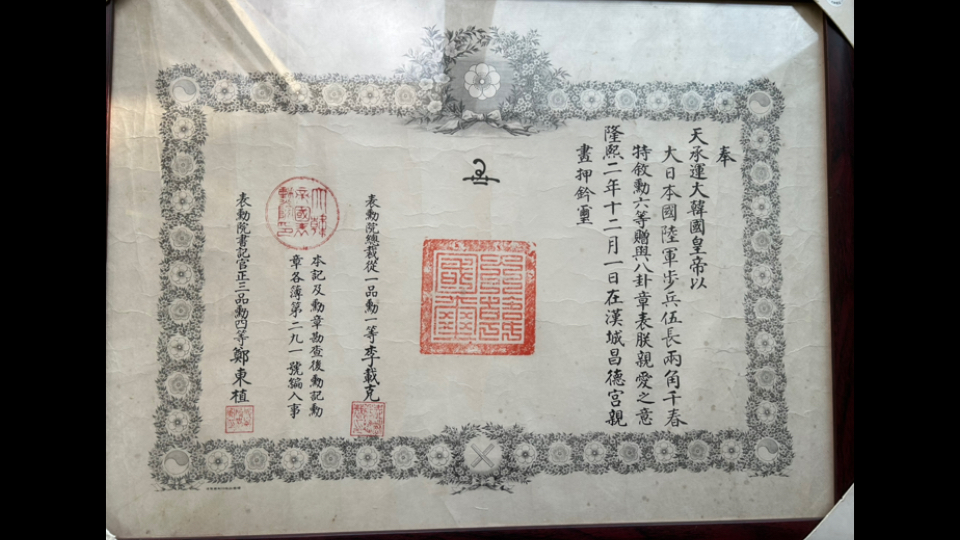 奉
天承運大韓國皇帝以
大日本國陸軍步兵伍長兩角千春
特敘勳六等贈與八卦章表朕親愛之意
隆熙二年十二月一日在漢城昌德宮親
畫押鈐璽
表勳院總裁從一品勳一等李載克
本記及勳章勘查後勳記勳
章各簿第二九一號編入事
表勳院書記官正三品勳四等鄭東植
大韓
帝國表
勳院印